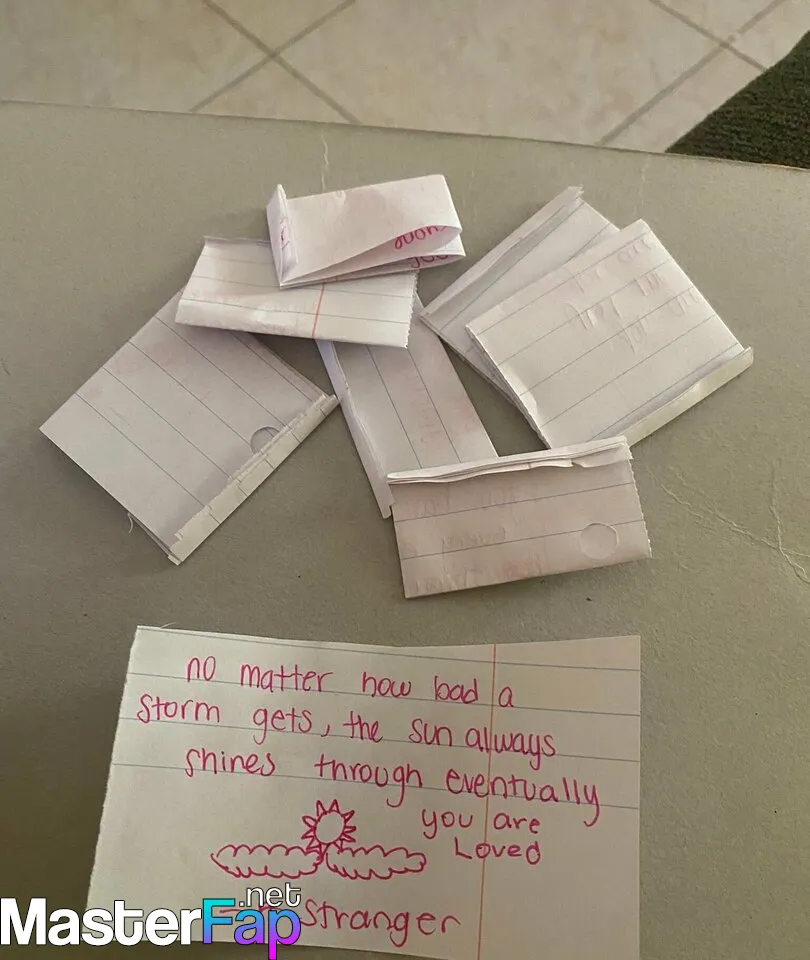 your
no matter how bad a
storm gets, the sun always
shines through eventually
you are
Loved
stranger
MasterFap.net